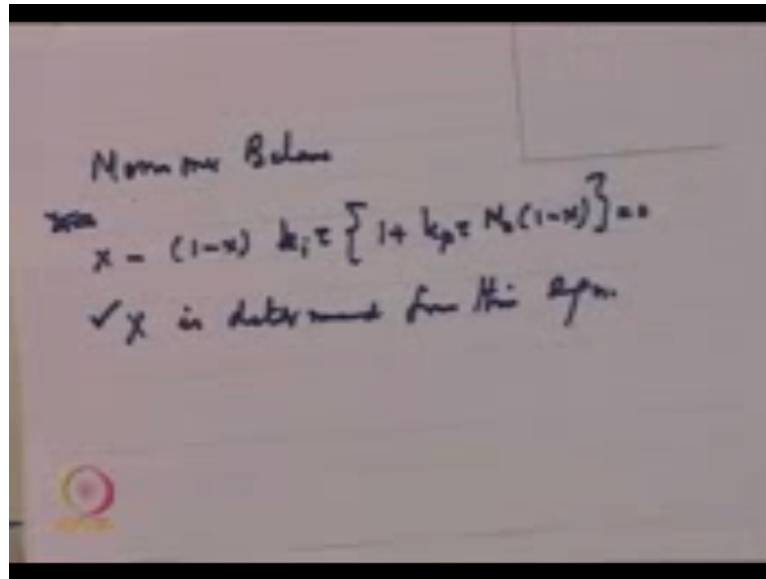 Monomer Balance
x - (1-x) kᵢτ { 1 + kₚτ M₀(1-x) } = 0
✓ x is determined from this eqn.